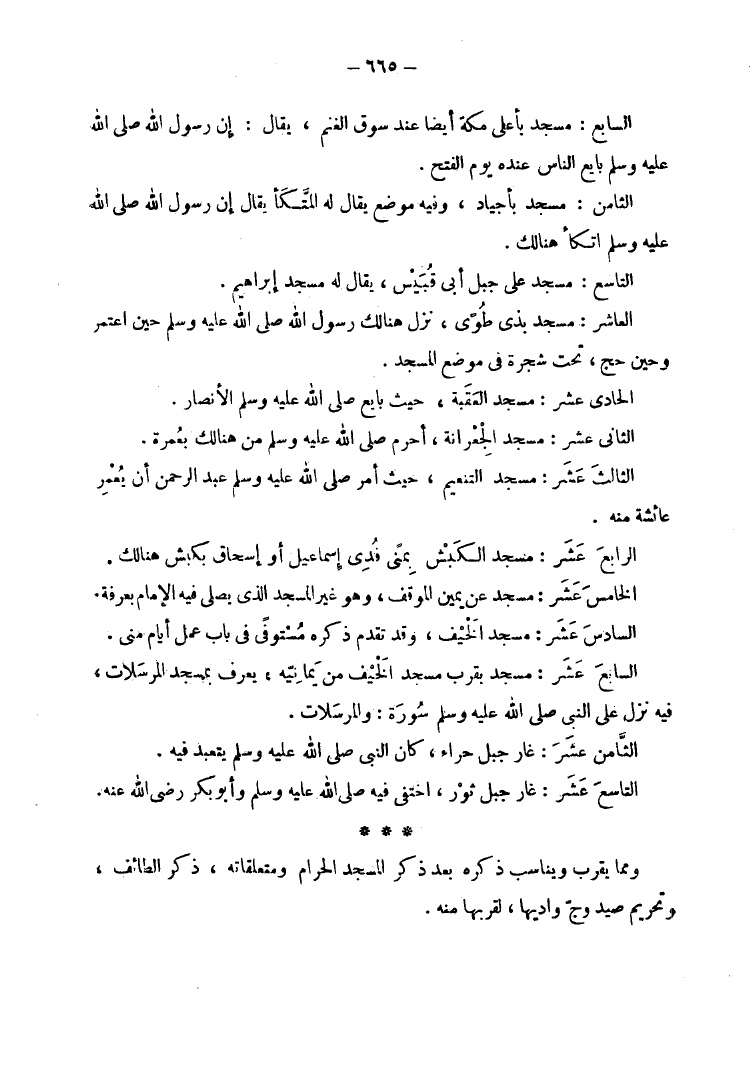 — ٦٦٥ —
السابع : مسجد بأعلى مكة أيضا عند سوق الغنم ، يقال : إن رسول الله صلى الله
عليه وسلم بايع الناس عنده يوم الفتح .
الثامن : مسجد بأجياد ، وفيه موضع يقال له المتَّكَأ يقال إن رسول الله صلى الله
عليه وسلم اتكأ هنالك .
التاسع : مسجد على جبل أبى قُبَيْس ، يقال له مسجد إبراهيم .
العاشر : مسجد بذى طُوًى ، نزل هنالك رسول الله صلى الله عليه وسلم حين اعتمر
وحين حج ، تحت شجرة فى موضع المسجد .
الحادى عشر : مسجد العَقَبة ، حيث بايع صلى الله عليه وسلم الأنصار .
الثانى عشر : مسجد الجِعْرانة ، أحرم صلى الله عليه وسلم من هنالك بعُمرة .
الثالثَ عَشَر : مسجد التنعيم ، حيث أمر صلى الله عليه وسلم عبد الرحمن أن يُعْمِر
عائشة منه .
الرابعَ عَشَر : مسجد الكَبْش بِمنًى فُدِى إسماعيل أو إسحاق بكبش هنالك .
الخامسَ عَشَر : مسجد عن يمين الموقف ، وهو غير المسجد الذى يصلى فيه الإمام بعرفة .
السادسَ عَشَر : مسجد الخَيْف ، وقد تقدم ذكره مُسْتوفًى فى باب عمل أيام منى .
السابعَ عَشَر : مسجد بقرب مسجد الخَيْف من يَمانِيّه ، يعرف بمسجد المرسَلات ،
فيه نزل على النبى صلى الله عليه وسلم سُورَة : والمرسَلات .
الثَّامن عشَرَ : غار جبل حراء ، كان النبى صلى الله عليه وسلم يتعبد فيه .
التاسعَ عَشَر : غار جبل ثوْر ، اختفى فيه صلى الله عليه وسلم وأبو بكر رضى الله عنه .
* * *
ومما يقرب ويناسب ذكره بعد ذكر المسجد الحرام ومتعلقاته ، ذكر الطائف ،
وتحريم صيد وجّ واديها ، لقربها منه .